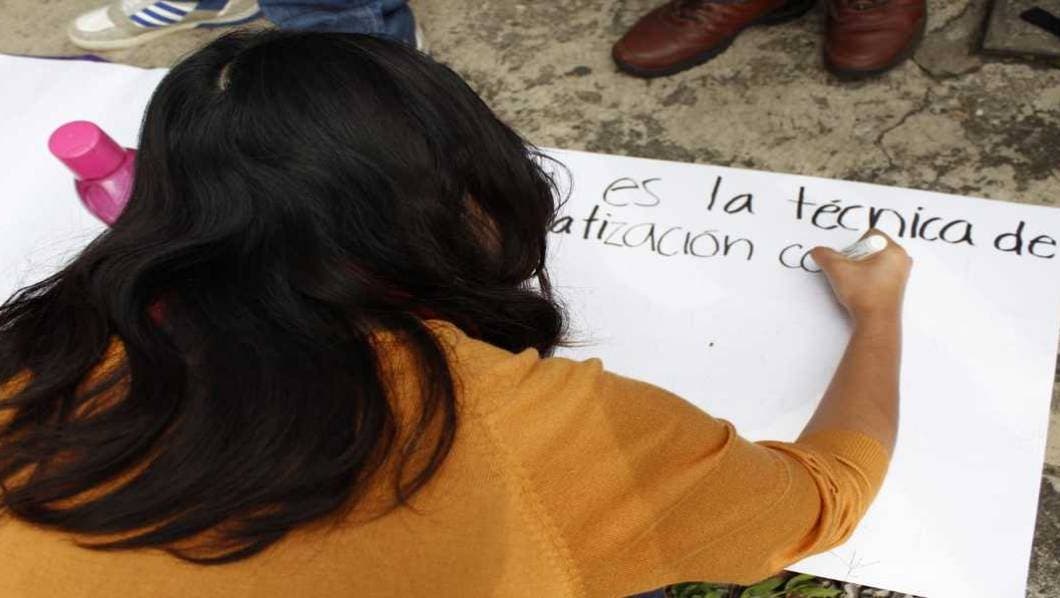 es la técnica de
atización co